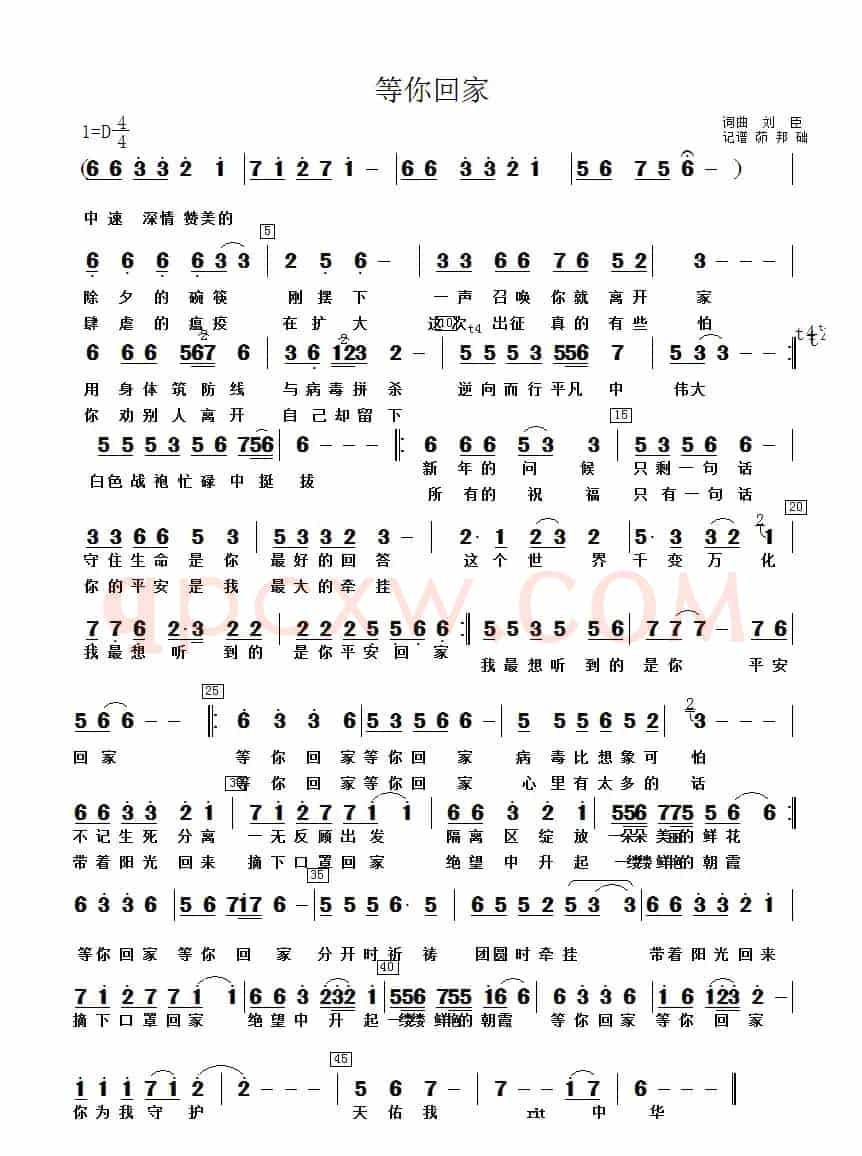 等你回家
1=D 4/4
词曲 刘 臣
记谱 茆 邦 础
(6 6 3 3 2 1 | 7 1 2 7 1 - | 6 6 3 3 2 1 | 5 6 7 5 6 - ) |
中 速 深情 赞美的
5
6 6 6 6 3 3 | 2 5 6 - | 3 3 6 6 7 6 5 2 | 3 - - - |
除 夕 的 碗 筷 刚 摆 下 一 声 召 唤 你 就 离 开 家
肆 虐 的 瘟 疫 在 扩 大 这 次 出 征 真 的 有 些 怕
6 6 6 5 6 7 6 | 3 6 1 2 3 2 - | 5 5 5 3 5 5 6 7 | 5 3 3 - - :||
用 身 体 筑 防 线 与 病 毒 拼 杀 逆 向 而 行 平 凡 中 伟 大
你 劝 别 人 离 开 自 己 却 留 下
15
5 5 5 3 5 6 7 5 6 | 6 - - - ||: 6 6 6 5 3 3 | 5 3 3 5 6 6 - |
白 色 战 袍 忙 碌 中 挺 拔 新 年 的 问 候 只 剩 一 句 话
所 有 的 祝 福 只 有 一 句 话
20
3 3 6 6 5 3 | 5 3 3 2 3 - | 2· 1 2 2 3 | 5· 3 3 2 1 |
守 住 生 命 是 你 最 好 的 回 答 这 个 世 界 千 变 万 化
你 的 平 安 是 我 最 大 的 牵 挂
7 7 6 2·3 2 2 | 2 2 2 5 5 6 6 :|| 5 5 3 5 5 6 | 7 7 7 - 7 6 |
我 最 想 听 到 的 是 你 平 安 回 家 我 最 想 听 到 的 是 你 平 安
25
5 6 6 - - ||: 6 3 3 6 | 5 3 2 2 - | 5 5 5 6 5 2 | 3 - - - |
回 家 等 你 回 家 等 你 回 家 病 毒 比 想 象 可 怕
等 你 回 家 等 你 回 家 心 里 有 太 多 的 话
6 6 3 3 2 1 | 7 1 2 7 7 1 1 | 6 6 3 2 1 | 5 5 6 7 7 5 5 6 6 :||
不 记 生 死 分 离 一 无 反 顾 出 发 隔 离 区 绽 放 一朵朵 美丽的 鲜 花
带 着 阳 光 回 来 摘 下 口 罩 回 家 绝 望 中 升 起 一缕缕 鲜艳的 朝 霞
35
6 3 3 6 | 5 5 6 7 1 7 6 - | 5 5 5 6· 5 | 6 5 5 2 5 3 3 | 6 6 3 3 2 1 |
等 你 回 家 等 你 回 家 分 开 时 祈 祷 团 圆 时 牵 挂 带 着 阳 光 回 来
40
7 1 2 7 7 1 1 | 6 6 3 2 3 2 1 | 5 5 6 7 5 5 1 6 6 | 6 3 3 6 | 1 6 1 2 3 2 - |
摘 下 口 罩 回 家 绝 望 中 升 起 一缕缕 鲜艳的 朝 霞 等 你 回 家 等 你 回 家
45
1 1 1 7 1 2 | 2 - - - | 5 6 7 - | 7 - 1 7 | 6 - - - ||
你 为 我 守 护 天 佑 我 rit 中 华
qpcxw.COM